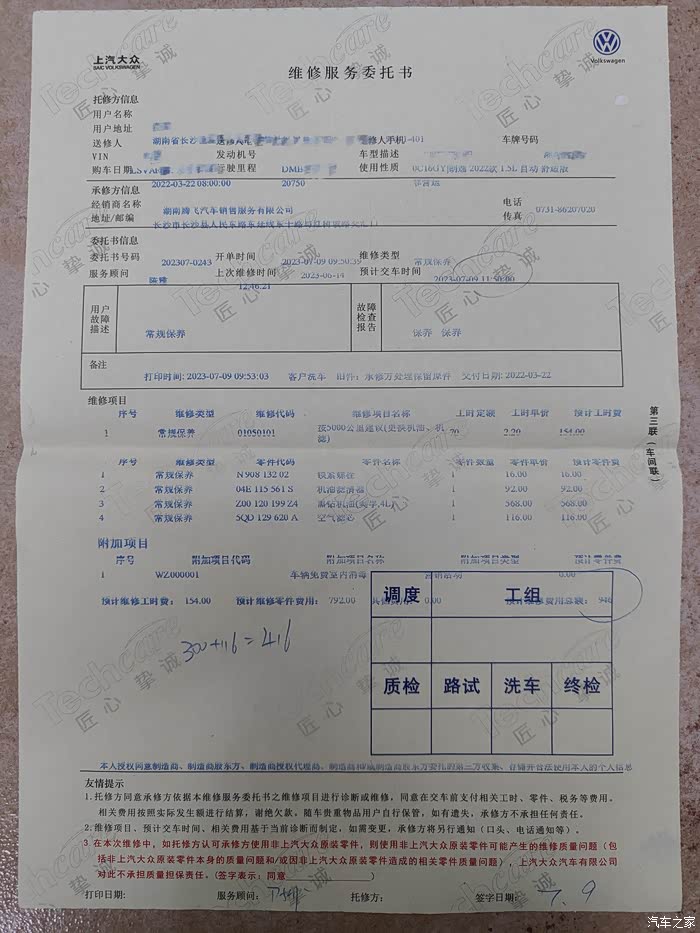 上汽大众
SAIC VOLKSWAGEN
Volkswagen
维修服务委托书
托修方信息
用户名称
用户地址
送修人 湖南省长沙 修人手机 -401 车牌号码
VIN 发动机号 车型描述
购车日期 行驶里程 DMB 使用性质 2022款 1.5L 自动 舒适版
2022-03-22 08:00:00 20750
承修方信息
经销商名称 湖南腾飞汽车销售服务有限公司 电话 0731-86207020
地址/邮编 传真
委托书信息
委托书号码 202307-0243 开单时间 2023-07-09 09:50:39 维修类型 常规保养
服务顾问 陈雅 上次维修时间 2023-06-14 预计交车时间 2023-07-09 11:50:00
12:46:21
用户故障描述 常规保养 故障检查报告 保养 保养
备注
打印时间: 2023-07-09 09:53:03 客户洗车 旧件：承修方处理保留原件 交付日期: 2022-03-22
维修项目
序号 维修类型 维修代码 维修项目名称 工时定额 工时单价 预计工时费
1 常规保养 01050101 按5000公里建议(更换机油、机滤) 70 2.20 154.00
序号 维修类型 零件代码 零件名称 零件数量 零件单价 预计零件费
1 常规保养 N 908 132 02 锁紧螺栓 1 16.00 16.00
2 常规保养 04E 115 561 S 机油滤清器 1 92.00 92.00
3 常规保养 Z00 120 199 Z4 1 568.00 568.00
4 常规保养 5QD 129 620 A 空气滤芯 1 116.00 116.00
附加项目
序号 附加项目代码 附加项目名称 附加项目类型 预计零件费
1 WZ000001 车辆免费室内消毒 营销活动 0.00
预计维修工时费： 154.00 预计维修零件费用： 792.00 其他费用: 0.00 预计维修费用总额: 946
300+116=416
调度 工组
质检 路试 洗车 终检
第三联（车间联）
本人授权同意制造商、制造商股东方、制造商授权代理商、制造商和/或制造商股东方委托的第三方收集、存储并合法使用本人的个人信息
友情提示
1.托修方同意承修方依据本维修服务委托书之维修项目进行诊断或维修，同意在交车前支付相关工时、零件、税务等费用。
相关费用按照实际发生额进行结算，谢绝欠款。随车贵重物品用户自行保管，如有遗失，承修方不承担任何责任。
2.维修项目、预计交车时间、相关费用基于当前诊断而制定，如需变更，承修方将另行通知（口头、电话通知等）。
3.在本次维修中，如托修方认可承修方使用非上汽大众原装零件，则使用非上汽大众原装零件可能产生的维修质量问题（包
括非上汽大众原装零件本身的质量问题和/或因非上汽大众原装零件造成的相关零件质量问题），上汽大众汽车有限公司
对此不承担质量担保责任。(签字表示：同意________)
打印日期: 服务顾问: 托修方: 签字日期: 7.9
Techcare
匠心 挚诚
汽车之家